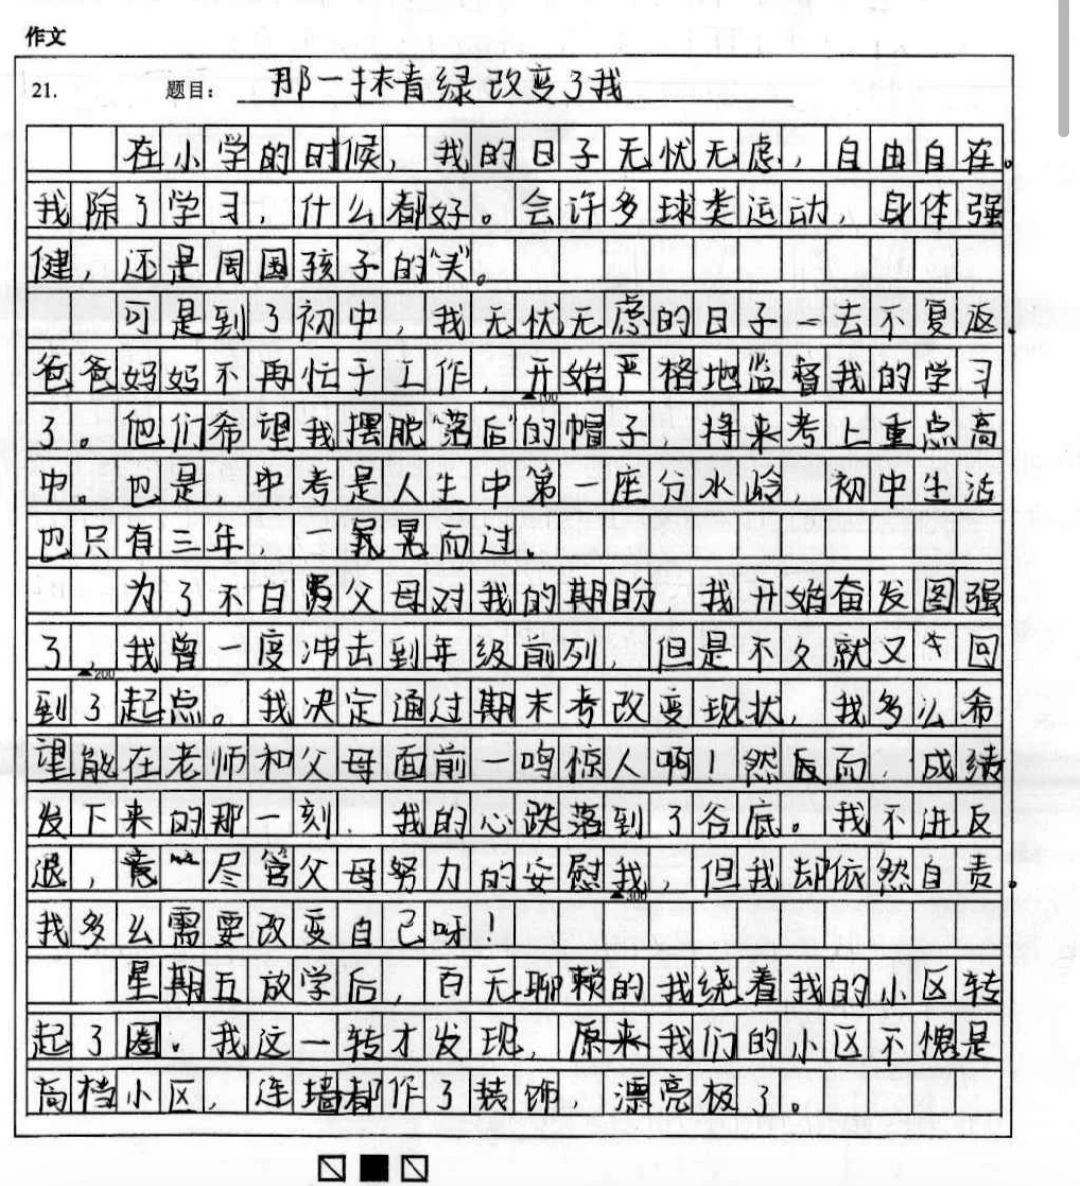 作文
21. 题目：那一抹青绿改变了我
在小学的时候，我的日子无忧无虑，自由自在。
我除了学习，什么都好。会许多球类运动，身体强
健，还是周围孩子的“头”。
可是到了初中，我无忧无虑的日子一去不复返，
爸爸妈妈不再忙于工作，开始严格地监督我的学习
▲100
了。他们希望我摆脱“落后”的帽子，将来考上重点高
中。也是，中考是人生中第一座分水岭，初中生活
也只有三年，一晃而过。
为了不白费父母对我的期盼，我开始奋发图强
了，我曾一度冲击到年级前列，但是不久就又回
▲200
到了起点。我决定通过期末考改变现状，我多么希
望能在老师和父母面前一鸣惊人啊！然而，成绩
发下来的那一刻，我的心跌落到了谷底。我不进反
退，尽管父母努力的安慰我，但我却依然自责。
▲300
我多么需要改变自己呀！
星期五放学后，百无聊赖的我绕着我的小区转
起了圈。我这一转才发现，原来我们的小区不愧是
高档小区，连墙都作了装饰，漂亮极了。